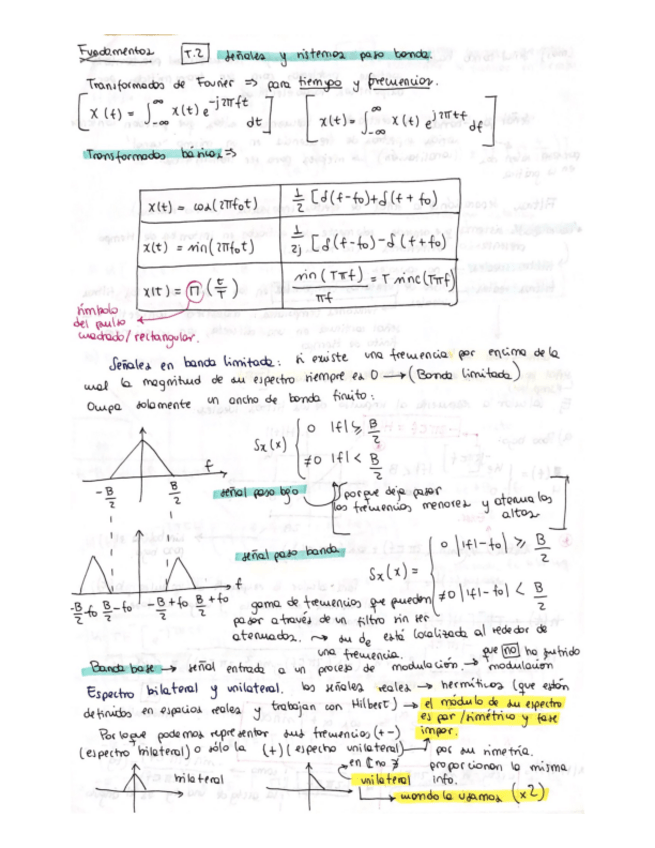 Fundamentos T.2 Señales y sistemas paso banda.
Transformadas de Fourier => para tiempo y frecuencias.
[X(f) = ∫_{-∞}^{∞} x(t) e^{-j2πft} dt] [x(t) = ∫_{-∞}^{∞} X(f) e^{j2πtf} df]
Transformadas básicas =>
x(t) = cos(2πf₀t) 1/2 [δ(f-f₀)+δ(f+f₀)
x(t) = sin(2πf₀t) 1/2j [δ(f-f₀)-δ(f+f₀)
x(t) = Π(t/T) sin(Tπf)/πf = T sinc(Tπf)
símbolo
del pulso
cuadrado/rectangular.
Señales en banda limitada: si existe una frecuencia por encima de la
cual la magnitud de su espectro siempre es 0 → (Banda limitada)
Ocupa solamente un ancho de banda finito:
Sx(x) { 0 |f| ≥ B/2
≠0 |f| < B/2
f
-B/2 B/2
señal paso bajo
porque deja pasar
las frecuencias menores y atenua las
altas
señal paso banda
Sx(x) = { 0 |f|-f₀| ≥ B/2
≠0 |f|-f₀| < B/2
f
-B/2-f₀ B/2-f₀ -B/2+f₀ B/2+f₀
gama de frecuencias que pueden
pasar a través de un filtro sin ser
atenuadas. ⇝ su de está localizada al rededor de
una frecuencia.
Banda base → señal entrada a un proceso de modulación. → que no ha sufrido
modulación
Espectro bilateral y unilateral. las señales reales → hermíticas (que están
definidas en espacios reales y trabajan con Hilbert) → el módulo de su espectro
es par/simétrico y fase
impar.
Por lo que podemos representar sus frecuencias (+ -)
(espectro bilateral) o sólo la (+) (espectro unilateral) → por su simetría.
proporcionan la misma
info.
bilateral
en ℂ no ∃
unilateral
cuando la usamos (x2)